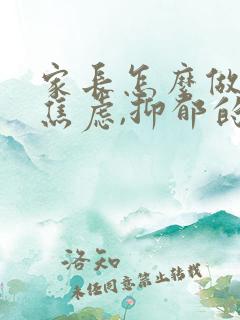 家长怎麽做
焦虑,抑郁的
洛知
未经同意禁止转载